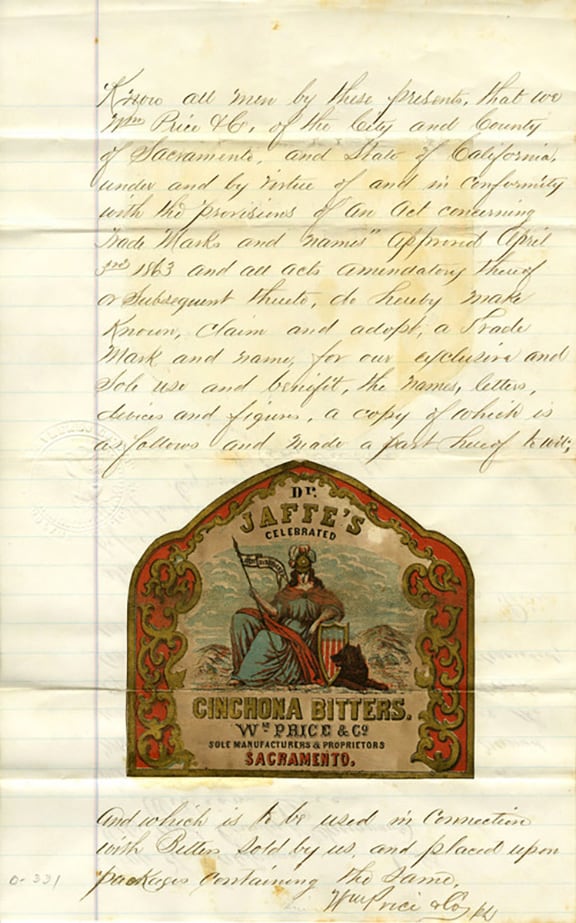 Know all men by these presents, that we
Wm Price & Co, of the City and County
of Sacramento, and State of California,
under and by virtue of and in conformity
with the provisions of "An Act concerning
Trade Marks and names" Approved April
3rd 1863 and all acts amendatory thereof
or Subsequent thereto, do hereby make
Known, Claim and adopt, a Trade
Mark and name, for our exclusive and
Sole use and benefit, the names, letters,
devices and figures, a copy of which is
as follows and made a part hereof towit;
Dr.
JAFFE'S
CELEBRATED
CINCHONA BITTERS.
Wm PRICE & Co
SOLE MANUFACTURERS & PROPRIETORS
SACRAMENTO.
And which is to be used in Connection
with Bitters sold by us, and placed upon
packages Containing the Same.
Wm Price & Co
0-331